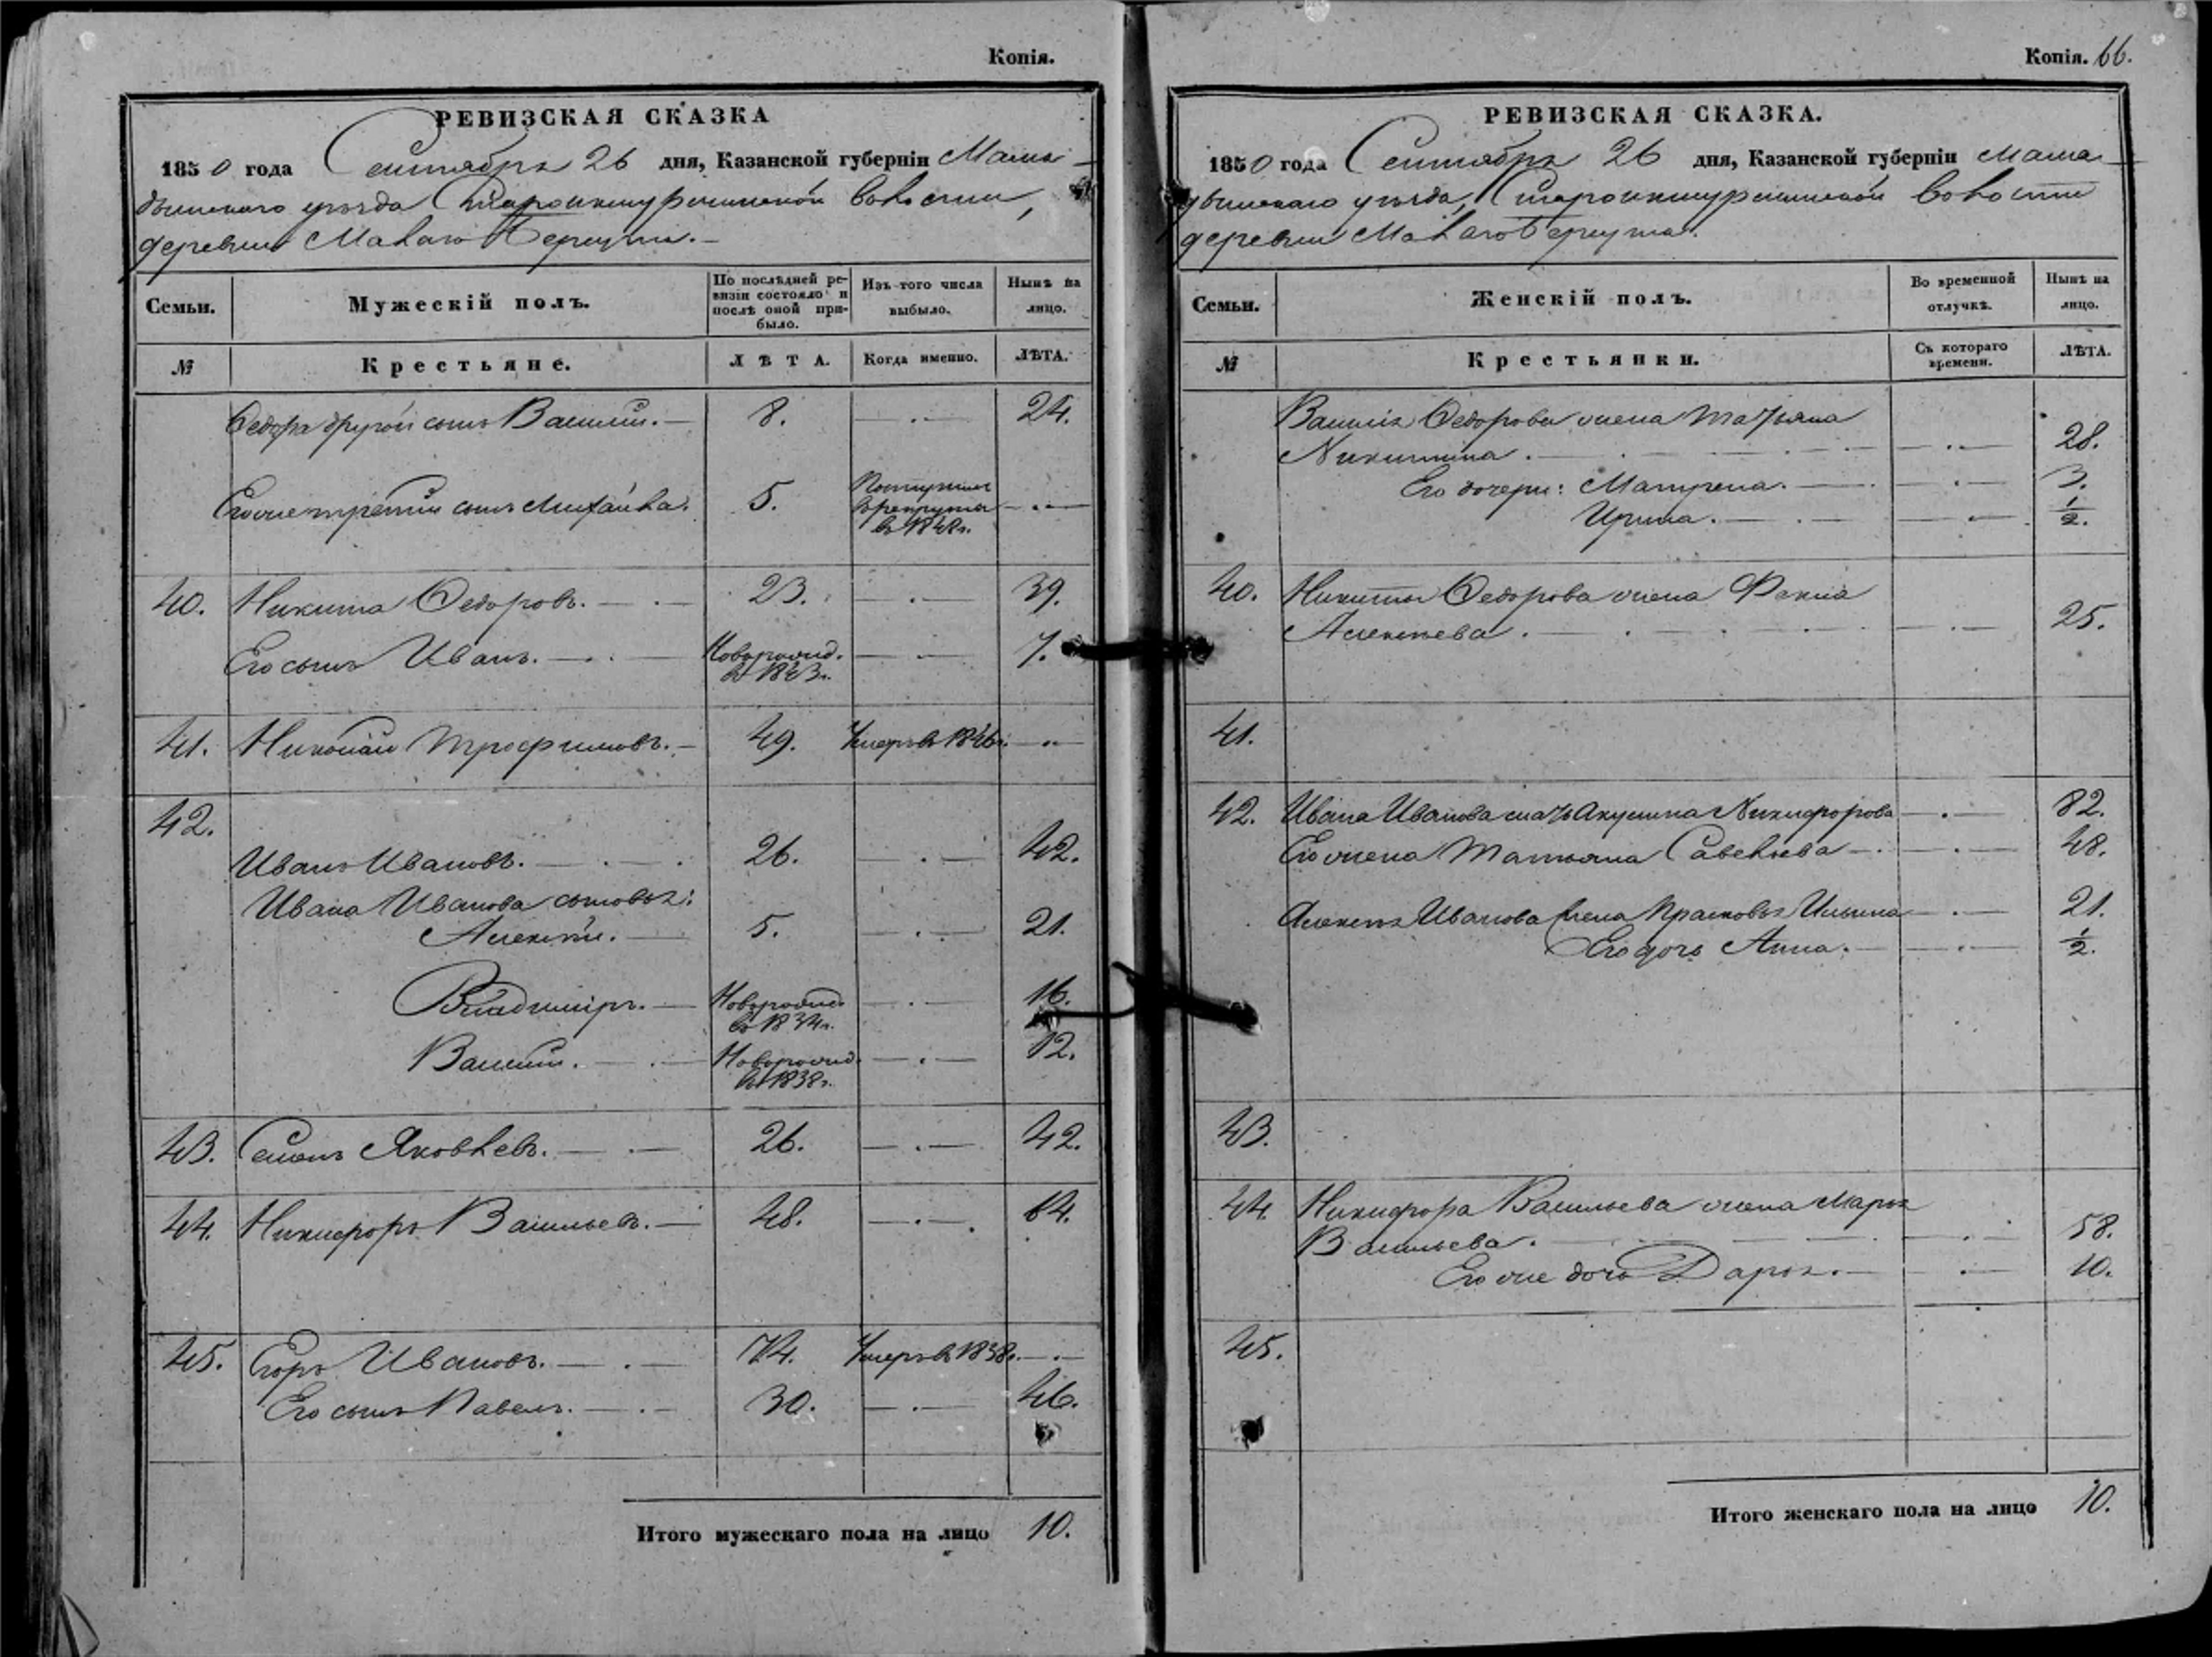 Копія.
РЕВИЗСКАЯ СКАЗКА
1850 года Сентября 26 дня, Казанской губерніи Мама-
дышскаго уѣзда Староикшурминской волости,
деревни Малаго Берсута.
Семьи. Мужескій полъ. По послѣдней ревизіи состояло и послѣ оной прибыло. Изъ того числа выбыло. Нынѣ на лицо.
№ Крестьяне. ЛѢТА. Когда именно. ЛѢТА.
Ѳедора другой сынъ Василій. 8. 24.
Его же третій сынъ Михайла. 5. Поступилъ
в рекруты
въ 1848 г.
40. Никита Ѳедоровъ. 23. 39.
Его сынъ Иванъ. Новорожд. 7.
въ 1843 г.
41. Николай Трофимовъ. 49. Умеръ въ 1846 г.
42.
Иванъ Ивановъ. 26. 42.
Ивана Иванова сыновья:
Алексѣй. 5. 21.
Владиміръ. Новорожд. 16.
въ 1834 г.
Василій. Новорожд. 12.
въ 1838 г.
43. Семенъ Яковлевъ. 26. 42.
44. Никифоръ Васильевъ. 48. 64.
45. Егоръ Ивановъ. 74. Умеръ въ 1838 г.
Его сынъ Павелъ. 30. 46.
Итого мужескаго пола на лицо 10.
Копія. 66.
РЕВИЗСКАЯ СКАЗКА.
1850 года Сентября 26 дня, Казанской губерніи Мама-
дышскаго уѣзда, Староикшурминской волости
деревни Малаго Берсута.
Семьи. Женскій полъ. Во временной отлучкѣ. Нынѣ на лицо.
№ Крестьянки. Съ котораго времени. ЛѢТА.
Василія Ѳедорова жена Татьяна
Никитина. 28.
Его дочери: Матрена. 3.
Ирина. 1/2.
40. Никиты Ѳедорова жена Фекла
Алексѣева. 25.
41.
42. Ивана Иванова мать Акулина Никифорова 82.
Его жена Татьяна Савельева 48.
Алексѣя Иванова жена Прасковья Ильина 21.
Его дочь Анна. 1/2.
43.
44. Никифора Васильева жена Марья
Васильева. 58.
Его же дочь Дарья. 10.
45.
Итого женскаго пола на лицо 10.